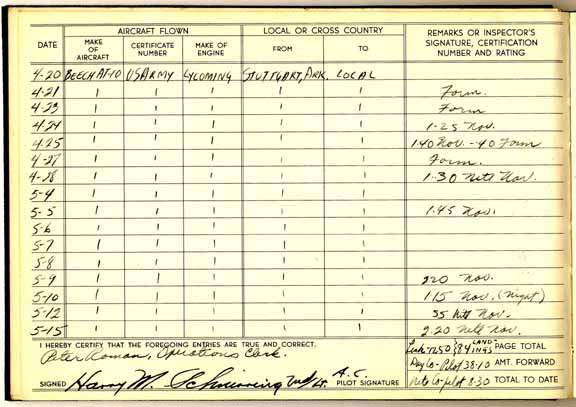 AIRCRAFT FLOWN LOCAL OR CROSS COUNTRY
DATE MAKE OF AIRCRAFT CERTIFICATE NUMBER MAKE OF ENGINE FROM TO REMARKS OR INSPECTOR'S SIGNATURE, CERTIFICATION NUMBER AND RATING
4-20 BEECH AT-10 US ARMY LYCOMING STUTTGART, ARK. LOCAL
4-21 Form.
4-23 Form
4-24 1-25 Nav.
4-25 1:40 Nav. - 40 Form
4-27 Form.
4-28 1-30 Nite Nav.
5-4
5-5 1:45 Nav.
5-6
5-7
5-8
5-9 220 Nav.
5-10 115 Nav. (Night)
5-12 55 Nav.
5-15 2:20 Nav.
I HEREBY CERTIFY THAT THE FOREGOING ENTRIES ARE TRUE AND CORRECT.
Peter Roman, Operations Clerk.
LANDINGS PAGE TOTAL
Day Co-Pilot 38:10 AMT. FORWARD
SIGNED Harry M. 2nd Lt. A.C. PILOT SIGNATURE
Nite Co-pilot 8:30 TOTAL TO DATE